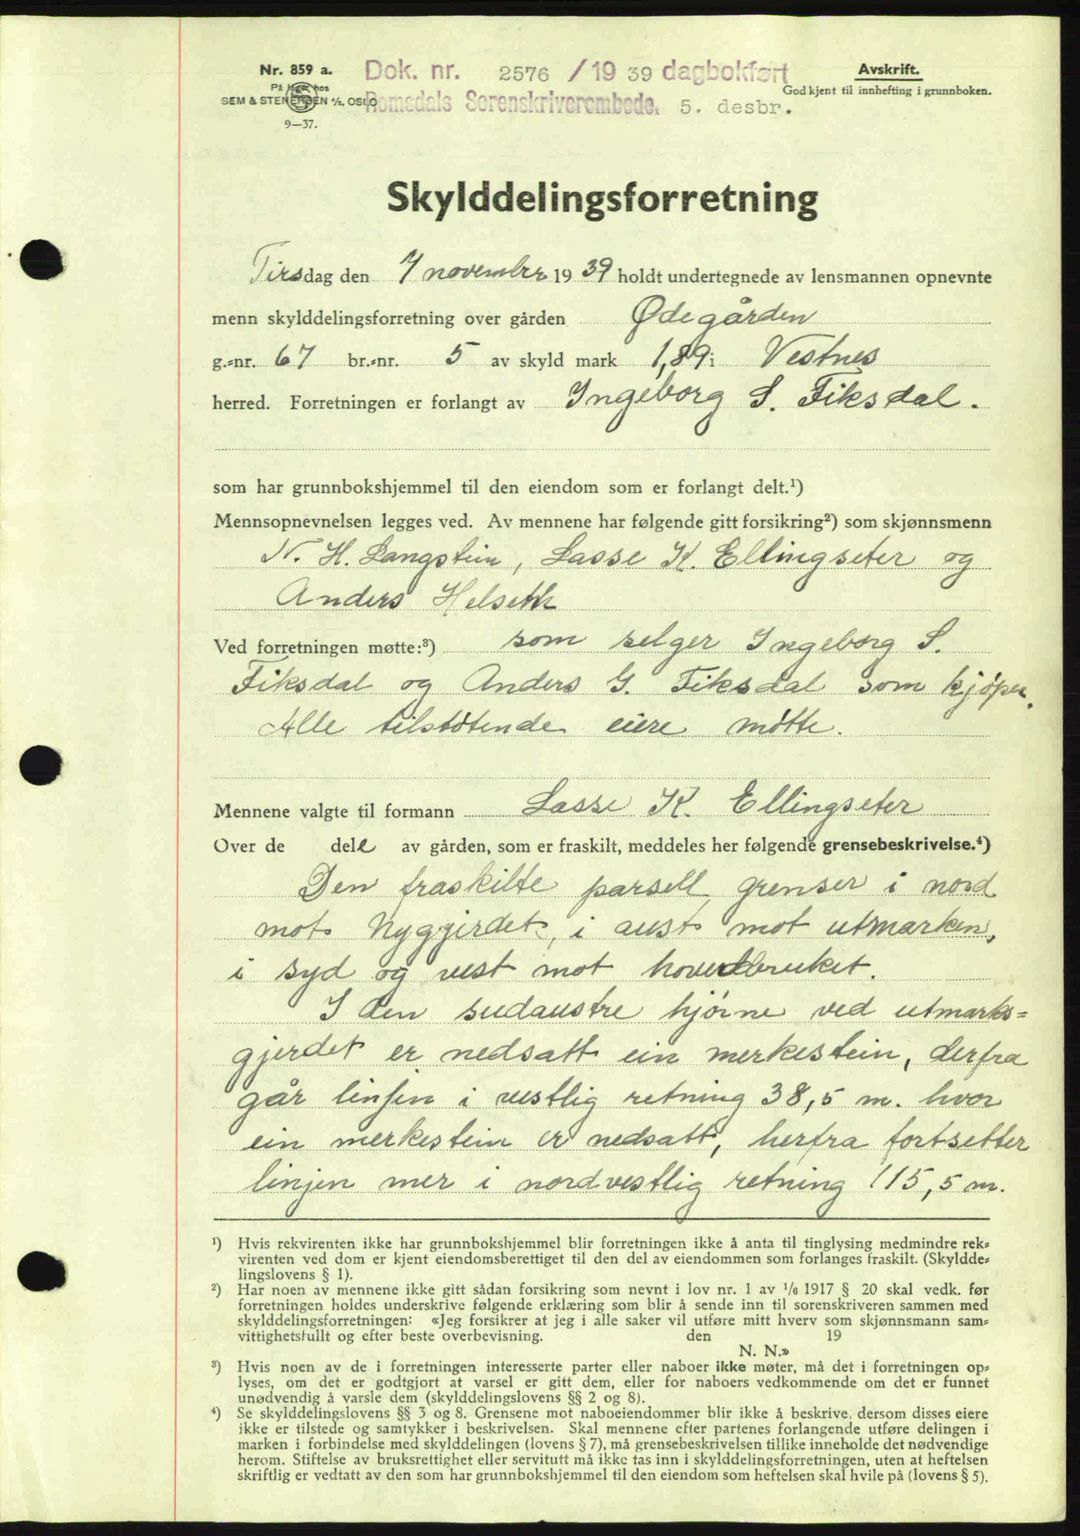 Nr. 859 a. Dok. nr. 2576 /19 39 dagbokført Avskrift.
På lager hos Godkjent til innhefting i grunnboken.
SEM & STENERSEN A/S, OSLO Romsdals Sorenskriverembede, 5. desbr.
9—37.
Skylddelingsforretning
Tirsdag den 7 november 19 39 holdt undertegnede av lensmannen opnevnte
menn skylddelingsforretning over gården Ødegården
g.-nr. 67 br.-nr. 5 av skyld mark 1,89 i Vestnes
herred. Forretningen er forlangt av Ingeborg S. Fiksdal.
som har grunnbokshjemmel til den eiendom som er forlangt delt.¹)
Mennsopnevnelsen legges ved. Av mennene har følgende gitt forsikring²) som skjønnsmenn
N. H. Langstein, Lasse K. Ellingseter og
Anders Helseth
Ved forretningen møtte:³) som selger Ingeborg S.
Fiksdal og Anders G. Fiksdal som kjøper.
Alle tilstøtende eiere møtte.
Mennene valgte til formann Lasse K. Ellingseter
Over de dele av gården, som er fraskilt, meddeles her følgende grensebeskrivelse.⁴)
Den fraskilte parsell grenser i nord
mot Nyggjerdet, i aust mot utmarken,
i syd og vest mot hovedbruket.
I den sudaustre hjørne ved utmarks-
gjerdet er nedsatt ein merkestein, derfra
går linjen i vestlig retning 38,5 m. hvor
ein merkestein er nedsatt, herfra fortsetter
linjen mer i nordvestlig retning 115,5 m.
¹) Hvis rekvirenten ikke har grunnbokshjemmel blir forretningen ikke å anta til tinglysing medmindre rek-
virenten ved dom er kjent eiendomsberettiget til den del av eiendommen som forlanges fraskilt. (Skyldde-
lingslovens § 1).
²) Har noen av mennene ikke gitt sådan forsikring som nevnt i lov nr. 1 av 1/6 1917 § 20 skal vedk. før
forretningen holdes underskrive følgende erklæring som blir å sende inn til sorenskriveren sammen med
skylddelingsforretningen: «Jeg forsikrer at jeg i alle saker vil utføre mitt hverv som skjønnsmann sam-
vittighetsfullt og efter beste overbevisning. den 19
N. N.»
³) Hvis noen av de i forretningen interesserte parter eller naboer ikke møter, må det i forretningen op-
lyses, om det er godtgjort at varsel er gitt dem, eller for naboers vedkommende om det er funnet
unødvendig å varsle dem (skylddelingslovens §§ 2 og 8).
⁴) Se skylddelingslovens §§ 3 og 8. Grensene mot naboeiendommer blir ikke å beskrive, dersom disses eiere
ikke er tilstede og samtykker i beskrivelsen. Skal mennene efter partenes forlangende utføre delingen i
marken i forbindelse med skylddelingen (lovens § 7), må grensebeskrivelsen tillike inneholde det nødvendige
herom. Stiftelse av bruksrettighet eller servitutt må ikke tas inn i skylddelingsforretningen, uten at heftelsen
skriftlig er vedtatt av den som har grunnbokshjemmel til den eiendom som heftelsen skal hvile på (lovens § 5).